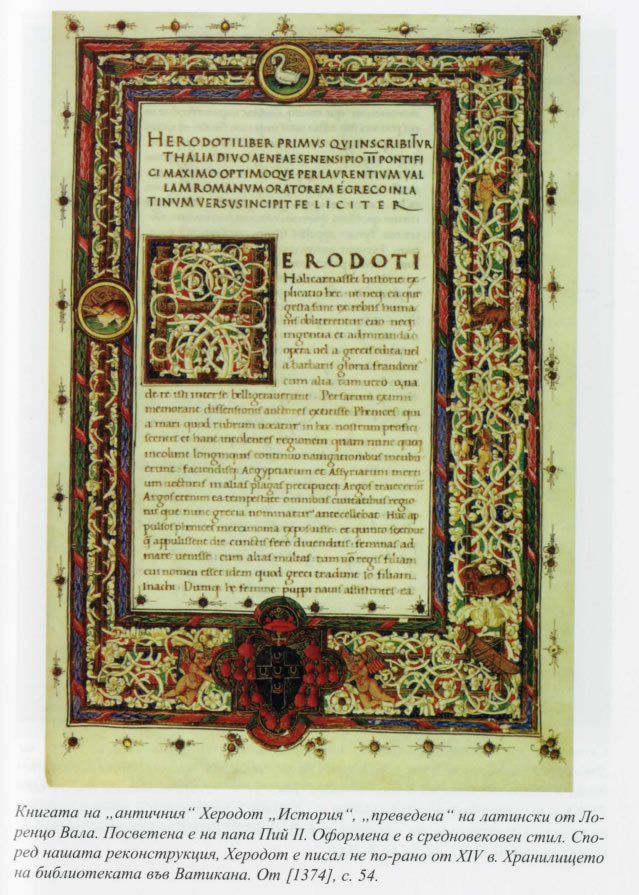 HERODOTI LIBER PRIMVS QVI INSCRIBITVR
THALIA DIVO AENEAE SENENSI PIO II PONTIFI
CI MAXIMO OPTIMOQVE PER LAVRENTIVM VAL
LAM ROMANVM ORATOREM E GRECO IN LA
TINVM VERSVS INCIPIT FELICITER
HERODOTI
Halicarnassei historie ex
plicatio hec ut neq; ea que
gesta sunt ex rebus huma
nis obliterentur euo neq;
ingentia et admiranda
opera uel a grecis edita uel
a barbaris gloria fraudent
cum alia tum uero qua
de re isti inter se belligerauerant. Persarum eximii
memorant dissensionis auctores extitisse Phenices qui
a mari quod rubrum uocatur in hoc nostrum profici
scentes et hanc incolentes regionem quam nunc quoq;
incolunt longinquis continuo nauigationibus incubu
erunt faciendisq; Aegyptiarum et Assyriarum merci
um uecturis in alias plagas precipueq; Argos traiecerunt
Argos etenim ea tempestate omnibus ciuitatibus regio
nis que nunc grecia nominatur antecellebat. Huc ap
pulsos phenices mercimonia exposuisse et quinto sextoue
q appulissent die cunctis fere diuenditis feminas ad
mare uenisse cum alias multas tum uero regis filiam
cui nomen esset idem quod greci tradunt Io filiam
Inachi. Dumq; he femine puppi nauis assistentes ea
Книгата на „античния“ Херодот „История“, „преведена“ на латински от Ло-
ренцо Вала. Посветена е на папа Пий II. Оформена е в средновековен стил. Спо-
ред нашата реконструкция, Херодот е писал не по-рано от XIV в. Хранилището
на библиотеката във Ватикана. От [1374], с. 54.